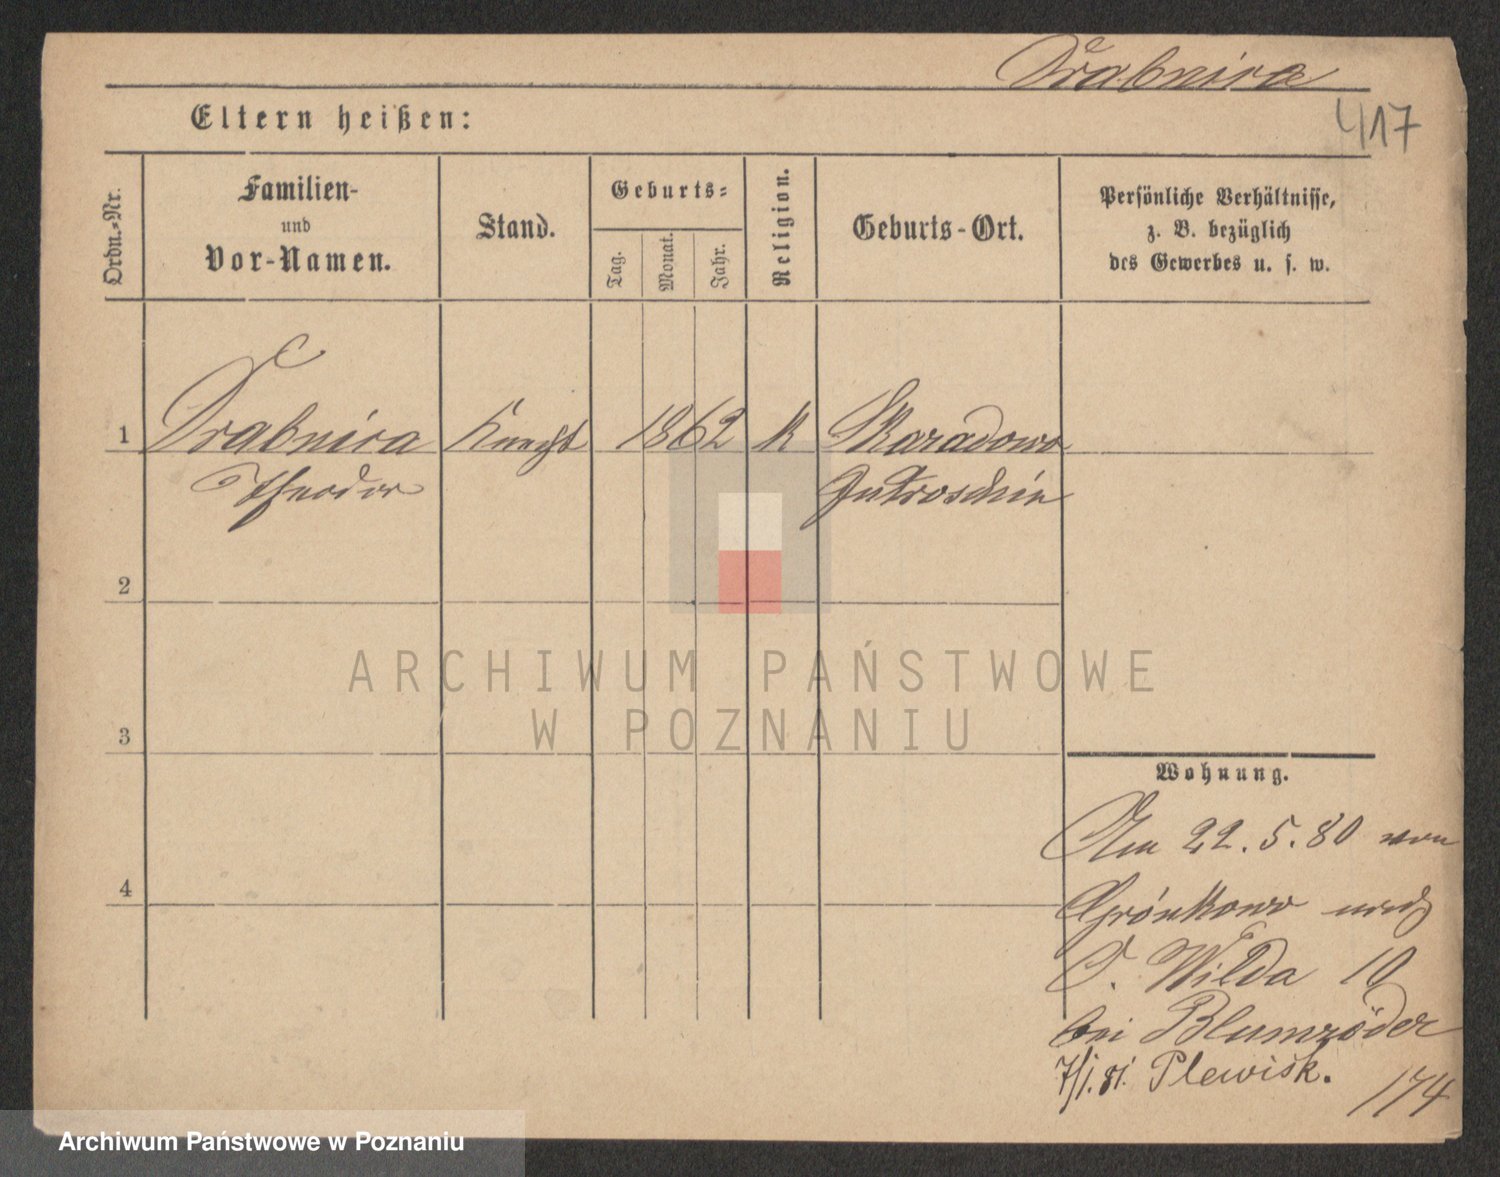 Drabnira
417
Eltern heißen:
Ordn.-Nr.
Familien-
und
Vor-Namen.
Stand.
Geburts-
Tag.
Monat.
Jahr.
Religion.
Geburts-Ort.
Persönliche Verhältnisse,
z. B. bezüglich
des Gewerbes u. s. w.
1 Drabnira Knecht 1862 k Skaradowo
Theodor Jutroschin
2
3
4
ARCHIWUM PAŃSTWOWE
W POZNANIU
Wohnung.
Am 22.5.80 von
nach
O. Wilda 10
bei Blumröder
7/1.81. Plewisk.
174
Archiwum Państwowe w Poznaniu